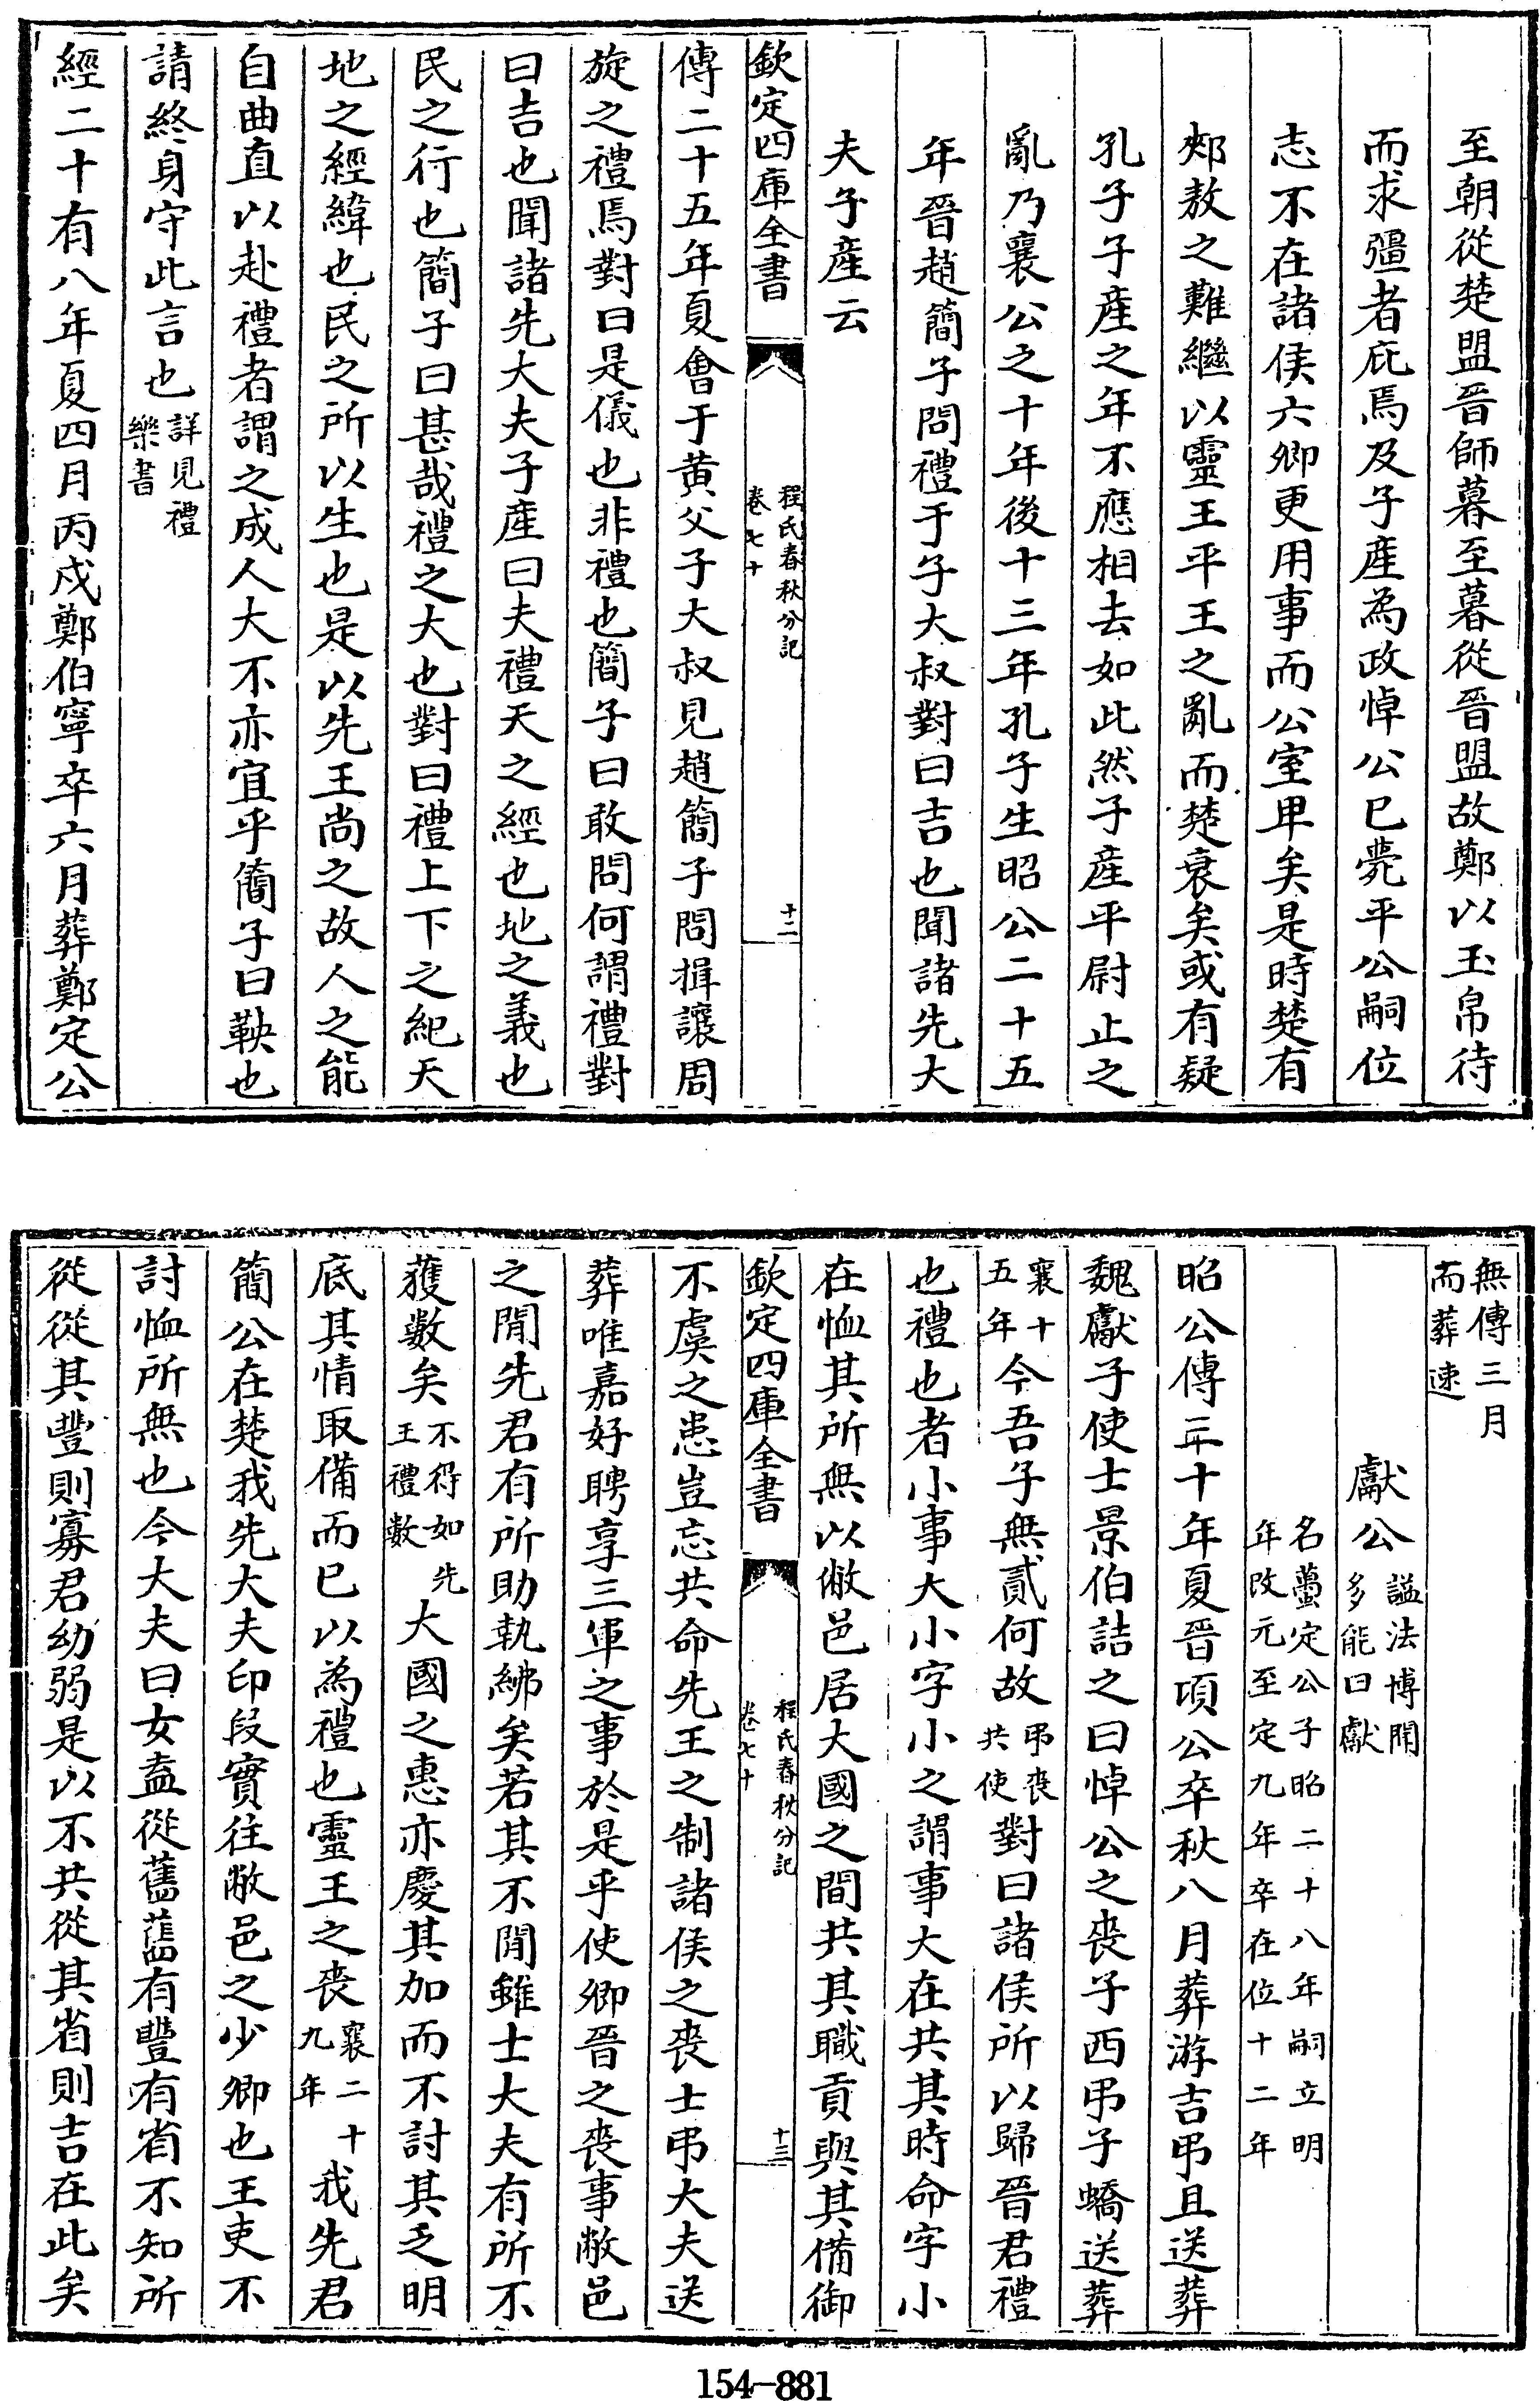 至朝從楚盟晉師暮至暮從晉盟故鄭以玉帛待
而求彊者庇焉及子產為政悼公已薨平公嗣位
志不在諸侯六卿更用事而公室卑矣是時楚有
郟敖之難繼以靈王平王之亂而楚衰矣或有疑
孔子子產之年不應相去如此然子產平尉止之
亂乃襄公之十年後十三年孔子生昭公二十五
年晉趙簡子問禮于子大叔對曰吉也聞諸先大
夫子產云
欽定四庫全書
程氏春秋分記
卷七十
十二
傳二十五年夏會于黃父子大叔見趙簡子問揖讓周
旋之禮焉對曰是儀也非禮也簡子曰敢問何謂禮對
曰吉也聞諸先大夫子產曰夫禮天之經也地之義也
民之行也簡子曰甚哉禮之大也對曰禮上下之紀天
地之經緯也民之所以生也是以先王尚之故人之能
自曲直以赴禮者謂之成人大不亦宜乎簡子曰鞅也
請終身守此言也詳見禮
樂書
經二十有八年夏四月丙戌鄭伯寧卒六月葬鄭定公
無傳三月
而葬速
獻公謚法博聞
多能曰獻
名蠆定公子昭二十八年嗣立明
年改元至定九年卒在位十二年
昭公傳三十年夏晉頃公卒秋八月葬游吉弔且送葬
魏獻子使士景伯詰之曰悼公之喪子西弔子蟜送葬
襄十
五年今吾子無貳何故弔喪
共使對曰諸侯所以歸晉君禮
也禮也者小事大小字小之謂事大在共其時命字小
在恤其所無以敝邑居大國之間共其職貢與其備御
欽定四庫全書
程氏春秋分記
卷七十
十三
不虞之患豈忘共命先王之制諸侯之喪士弔大夫送
葬唯嘉好聘享三軍之事於是乎使卿晉之喪事敝邑
之閒先君有所助執紼矣若其不閒雖士大夫有所不
獲數矣不得如先
王禮數大國之惠亦慶其加而不討其乏明
底其情取備而已以為禮也靈王之喪襄二十
九年我先君
簡公在楚我先大夫印段實往敝邑之少卿也王吏不
討恤所無也今大夫曰女盍從舊舊有豐有省不知所
從從其豐則寡君幼弱是以不共從其省則吉在此矣
154-881